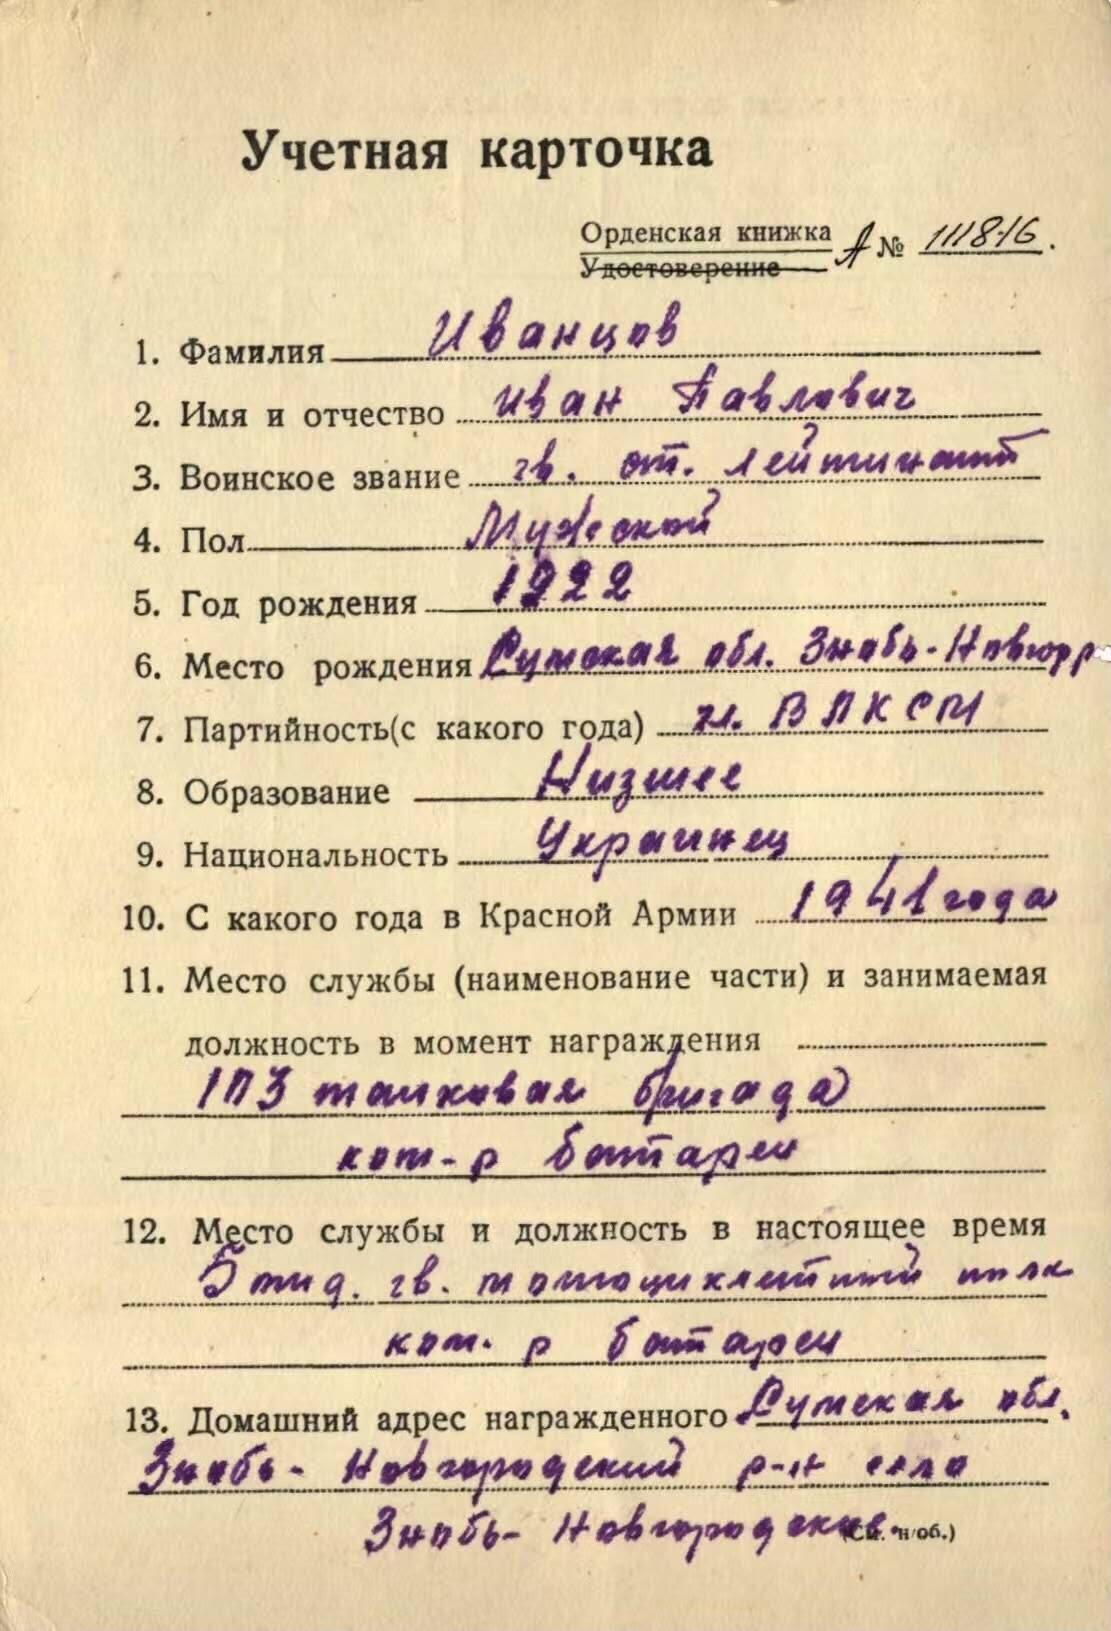 Учетная карточка
Орденская книжка А № 111816.
Удостоверение
1. Фамилия Иванцов
2. Имя и отчество Иван Павлович
3. Воинское звание гв. ст. лейтинант
4. Пол Мужской
5. Год рождения 1922
6. Место рождения Сумская обл. Знобь-Новгор р-
7. Партийность(с какого года) чл. ВЛКСМ
8. Образование Низшее
9. Национальность Украинец
10. С какого года в Красной Армии 1941 года
11. Место службы (наименование части) и занимаемая
должность в момент награждения
113 танковая бригада
ком-р батареи
12. Место службы и должность в настоящее время
гв. мотоциклетный полк
ком-р батареи
13. Домашний адрес награжденного Сумская обл.
Знобь-Новгородский р-н село
Знобь-Новгородские.
(См. н/об.)